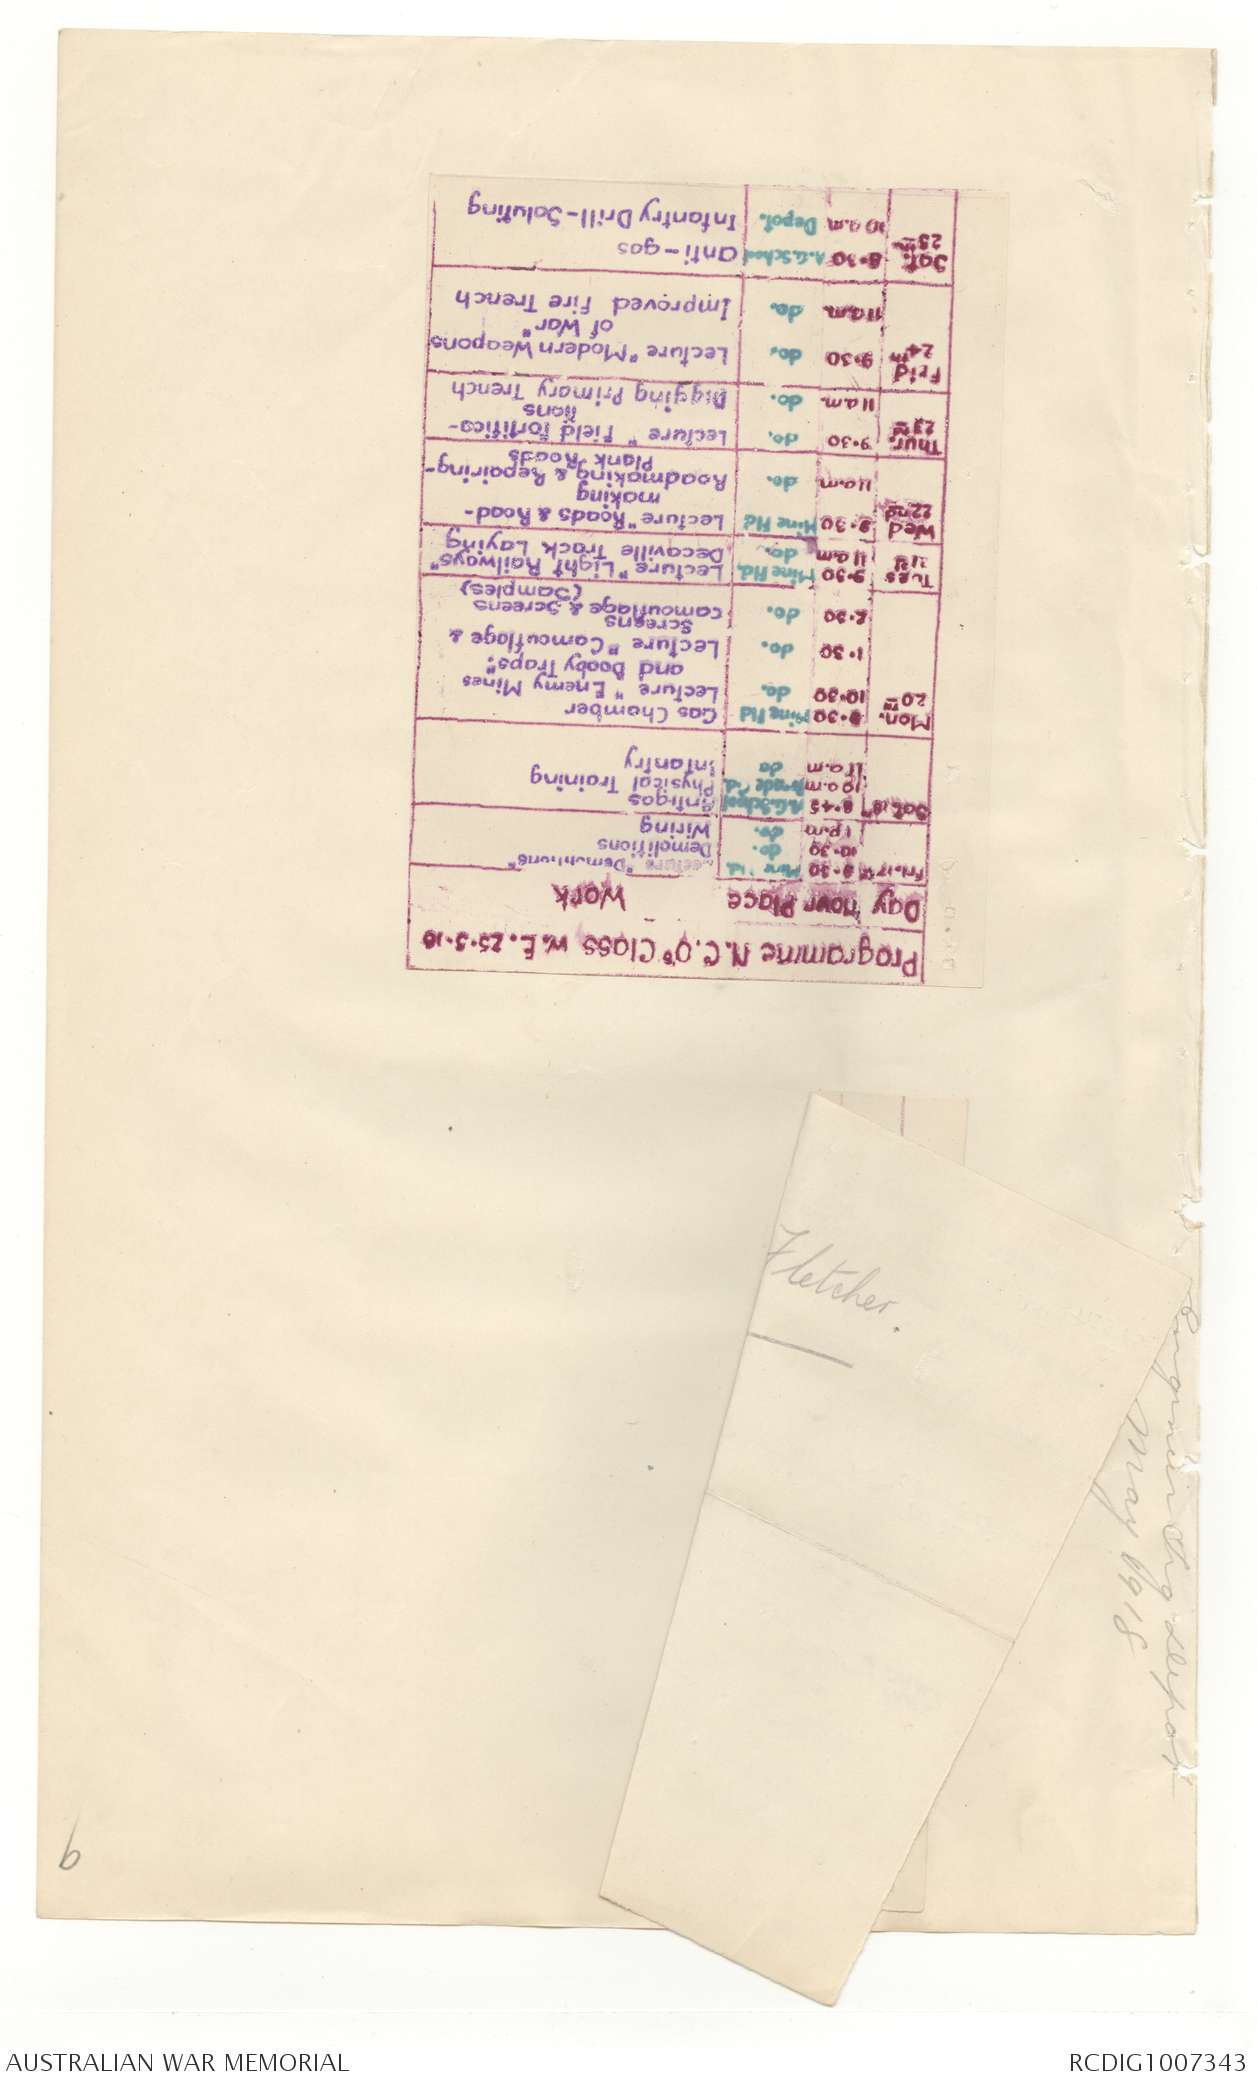 Programme N.C.Os Class W.E. 25.5.18
Day hour Place Work
Fri. 17th 9.30 Mine Fld. Lecture "Demolitions"
10.30 do. Demolitions
1 p.m do. Wiring
Sat. 18th 8.45 A.G.School Antigas
10 a.m Parade Gd. Physical Training
11 a.m do Infantry
Mon. 20th 8.30 Mine Fld Gas Chamber
10.30 do. Lecture "Enemy Mines
and Booby Traps".
1.30 do. Lecture "Camouflage &
Screens
2.30 do. Camouflage & Screens
(Samples)
Tues 21st 9.30 Mine Fld. Lecture "Light Railways"
11 a.m do. Decaville Track Laying
Wed 22nd 9.30 Mine Fld Lecture "Roads & Road-
making
11 a.m do. Roadmaking & Repairing-
Plank Roads
Thur. 23rd 9.30 do. Lecture "Field Fortifica-
tions
11 a.m. do. Digging Primary Trench
Frid 24th 9.30 do. Lecture "Modern Weapons
of War"
11 a.m. do. Improved Fire Trench
Sat. 25th 8.30 A.G.School Anti-gas
10 a.m Depot. Infantry Drill-Saluting
Fletcher.
May 1918
9
AUSTRALIAN WAR MEMORIAL
RCDIG1007343